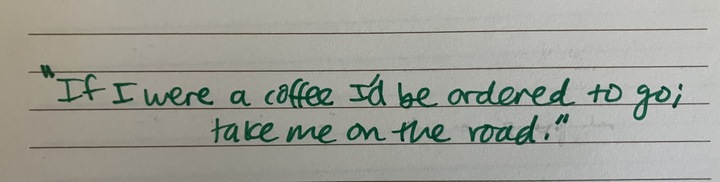 "If I were a coffee I'd be ordered to go;
take me on the road."